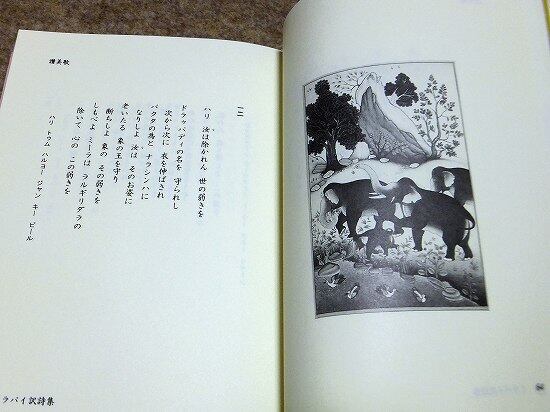 讃美歌
一二
ハリ 汝は除かれん 世の弱きを
ドラゥパディの名を 守られし
次から次に 衣を伸ばされ
バクタの為と ナラシンハに
なりしよ 汝は そのお姿に
老いたる 象の王を守り
断ちしよ 象の その弱きを
しもべよ ミーラは ラルギリダラの
除いて 心の この弱きを
ハリ トゥム ハルヨー ジャン キー ピール
ラバイ訳詩集